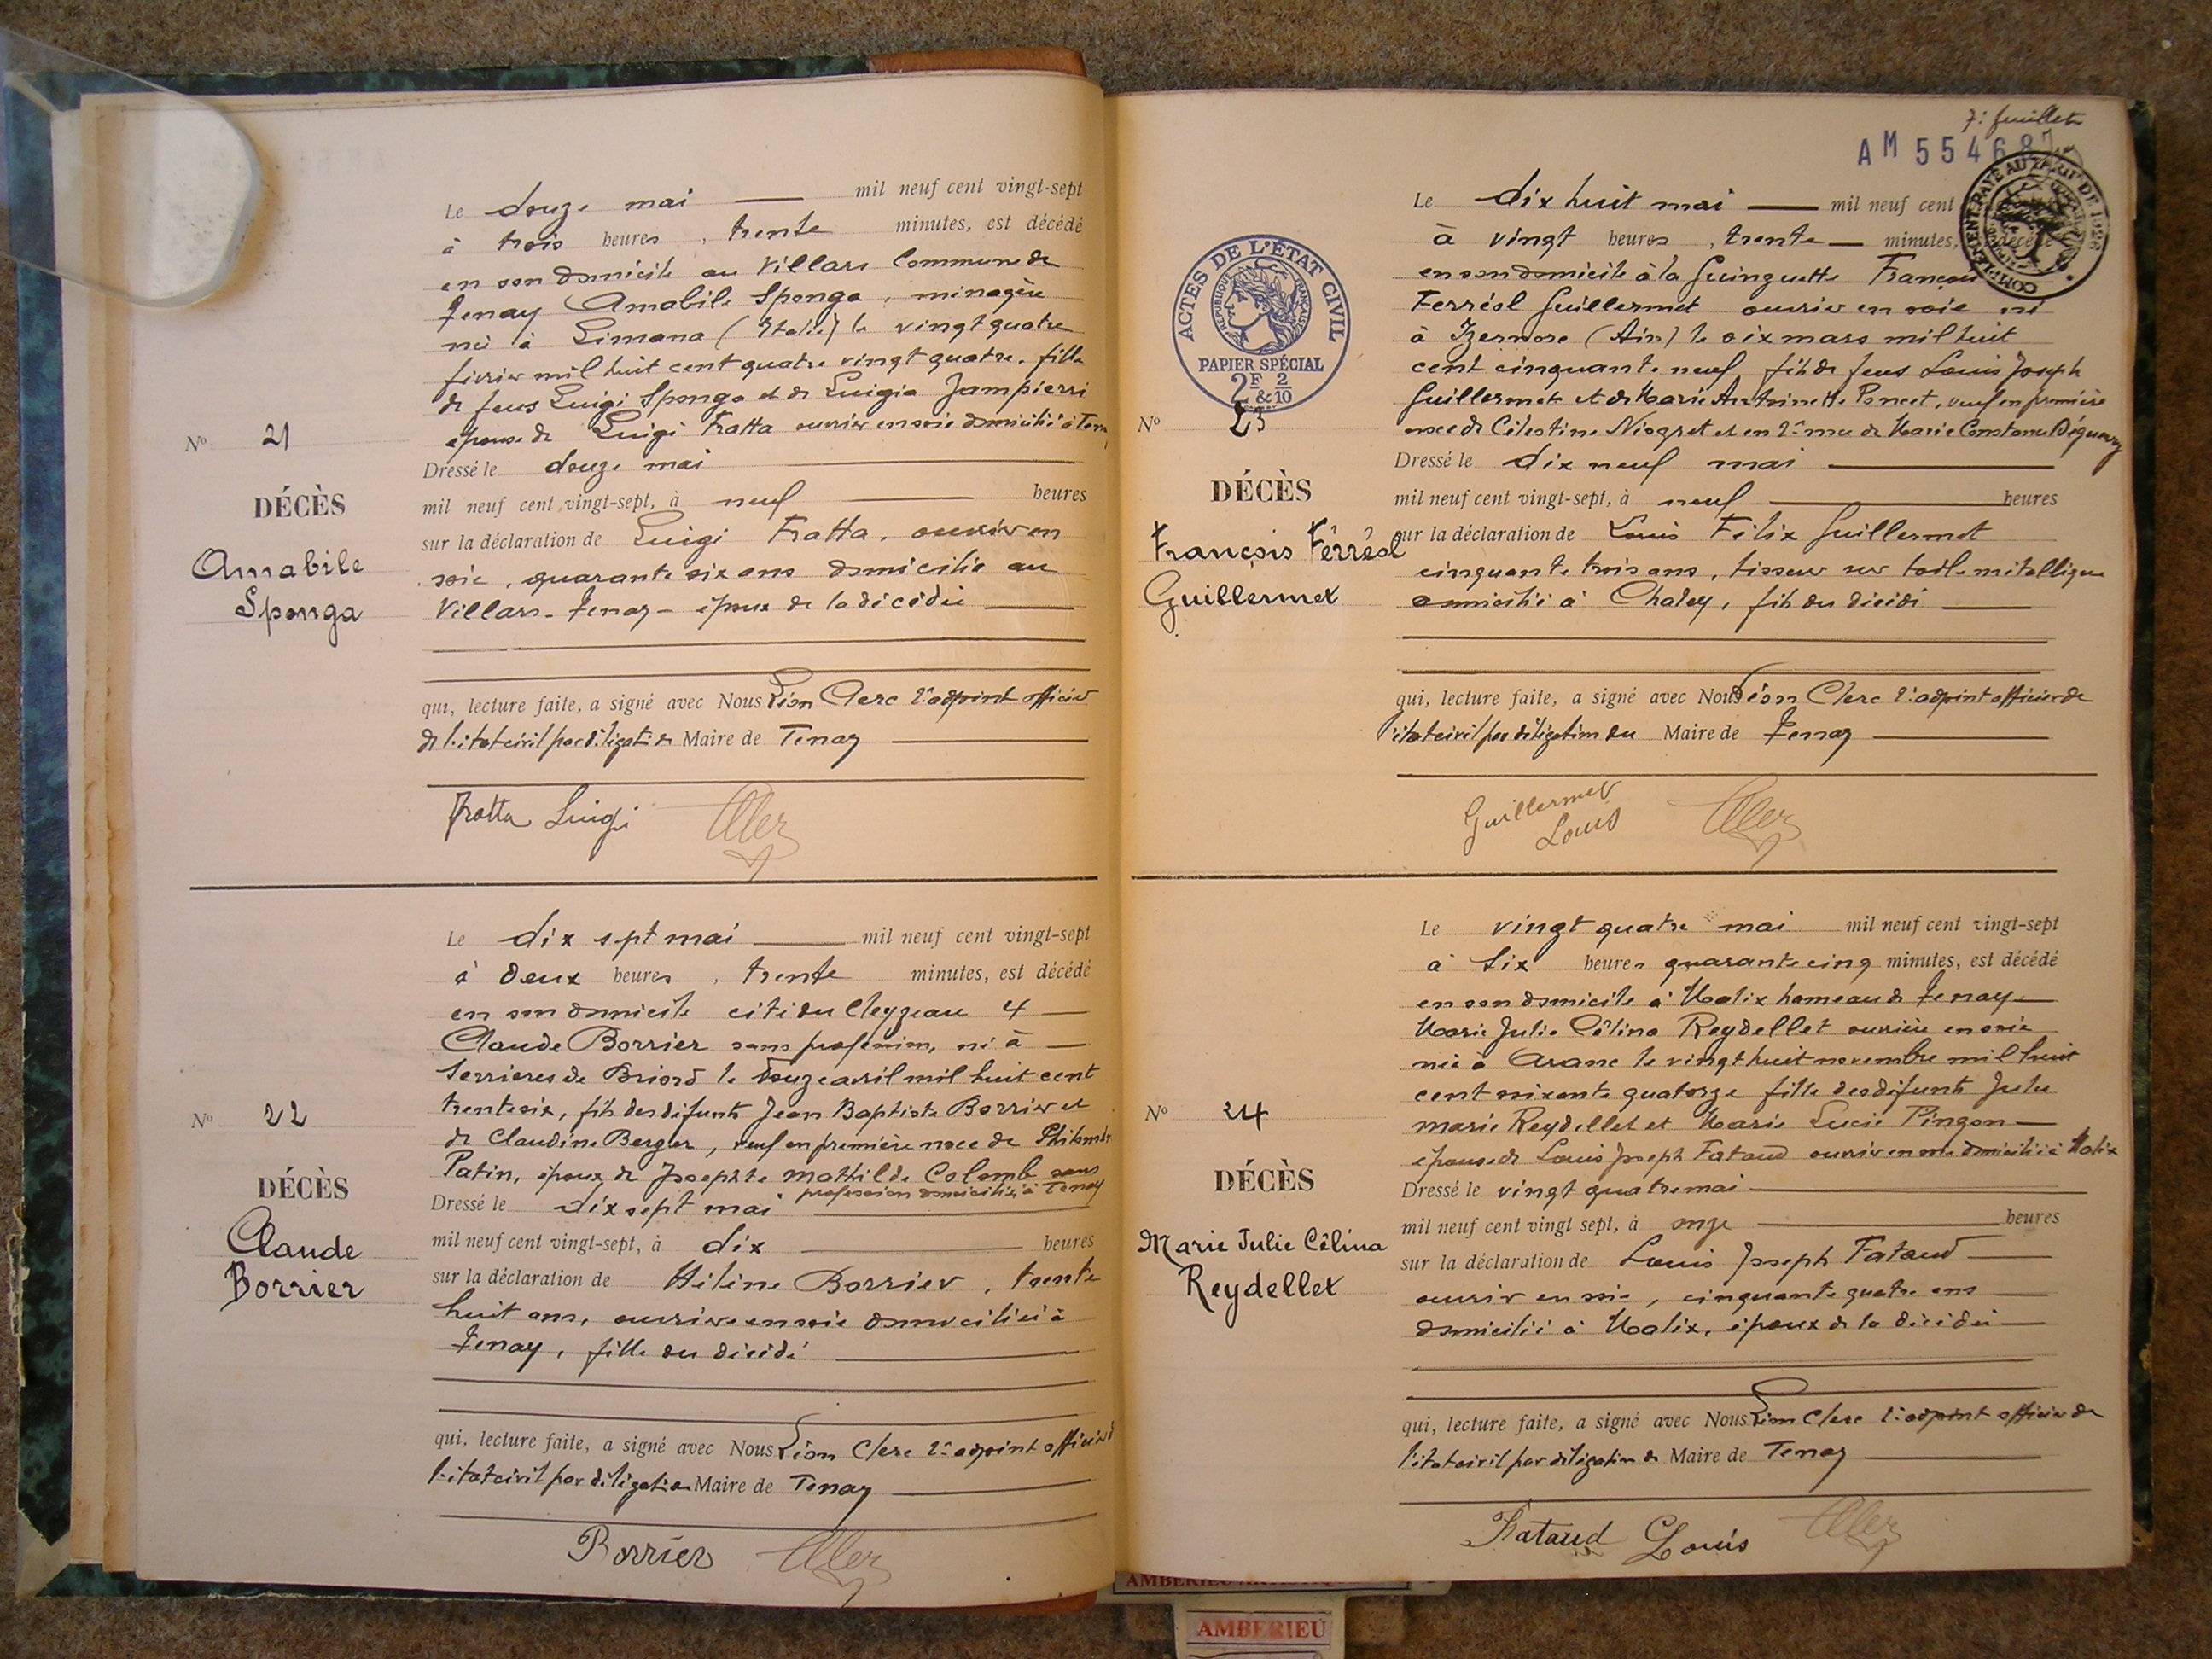 Le douze mai mil neuf cent vingt-sept
à trois heures, trente minutes, est décédé
en son domicile au Villars Commune de
Tenay Amabile Sponga, ménagère
née à Limana (Italie) le vingt quatre
février mil huit cent quatre vingt quatre, fille
de feus Luigi Sponga et de Luigia Jampierri
épouse de Luigi Fratta ouvrier en soie domicilié à
Nº 21
DÉCÈS
Amabile
Sponga
Dressé le douze mai
mil neuf cent vingt-sept, à neuf heures
sur la déclaration de Luigi Fratta, ouvrier en
soie, quarante six ans domicilié au
Villars-Tenay - époux de la décédée
qui, lecture faite, a signé avec Nous Léon Clerc 2e adjoint officier
de l'état civil par délégation Maire de Tenay
Fratta Luigi
Nº 22
DÉCÈS
Claude
Borrier
Le dix sept mai mil neuf cent vingt-sept
à deux heures, trente minutes, est décédé
en son domicile cité du Cleyzeau 4
Claude Borrier sans profession, né à
Serrieres de Briord le douze avril mil huit cent
trente six, fils des défunts Jean Baptiste Borrier et
de Claudine Berger, veuf en première noce de
Patin, époux de Josephte Mathilde Colomb sans
profession domiciliée à Tenay
Dressé le dix sept mai
mil neuf cent vingt-sept, à dix heures
sur la déclaration de Hélène Borrier, trente
huit ans, ouvrière en soie domiciliée à
Tenay, fille du décédé
qui, lecture faite, a signé avec Nous Léon Clerc 2e adjoint officier d
l'état civil par délégation Maire de Tenay
Borrier
7e feuillet
AM 55468
ACTES DE L'ÉTAT CIVIL
RÉPUBLIQUE FRANÇAISE
PAPIER SPÉCIAL
2F & 2/10
COMPLÉMENT PAYÉ AU TARIF DE 1926
Nº 23
DÉCÈS
François Ferréol
Guillermet
Le dix huit mai mil neuf cent
à vingt heures, trente minutes, décédé
en son domicile à la Guinguette François
Ferréol Guillermet ouvrier en soie né
à Izernore (Ain) le six mars mil huit
cent cinquante neuf, fils de feus Louis Joseph
Guillermet et de Marie Antoinette Poncet, veuf en première
noce de Célestine Niogret et en 2e noce de Marie Constance
Dressé le dix neuf mai
mil neuf cent vingt-sept, à neuf heures
sur la déclaration de Louis Félix Guillermet
cinquante trois ans, tisseur sur toile métallique
domicilié à Chaley, fils du décédé
qui, lecture faite, a signé avec Nous Léon Clerc 2e adjoint officier de
l'état civil par délégation du Maire de Tenay
Guillermet
Louis
Nº 24
DÉCÈS
Marie Julie Célina
Reydellet
Le vingt quatre mai mil neuf cent vingt-sept
à six heures quarante cinq minutes, est décédé
en son domicile à Malix hameau de Tenay
Marie Julie Célina Reydellet ouvrière en soie
née à Aranc le vingt huit novembre mil huit
cent soixante quatorze fille des défunts Jules
Marie Reydellet et Marie Lucie Pingon
épouse de Louis Joseph Fataud ouvrier en soie domicilié à Malix
Dressé le vingt quatre mai
mil neuf cent vingt sept, à onze heures
sur la déclaration de Louis Joseph Fataud
ouvrier en soie, cinquante quatre ans
domicilié à Malix, époux de la décédée
qui, lecture faite, a signé avec Nous Léon Clerc 2e adjoint officier de
l'état civil par délégation du Maire de Tenay
Fataud Louis
AMBERIEU